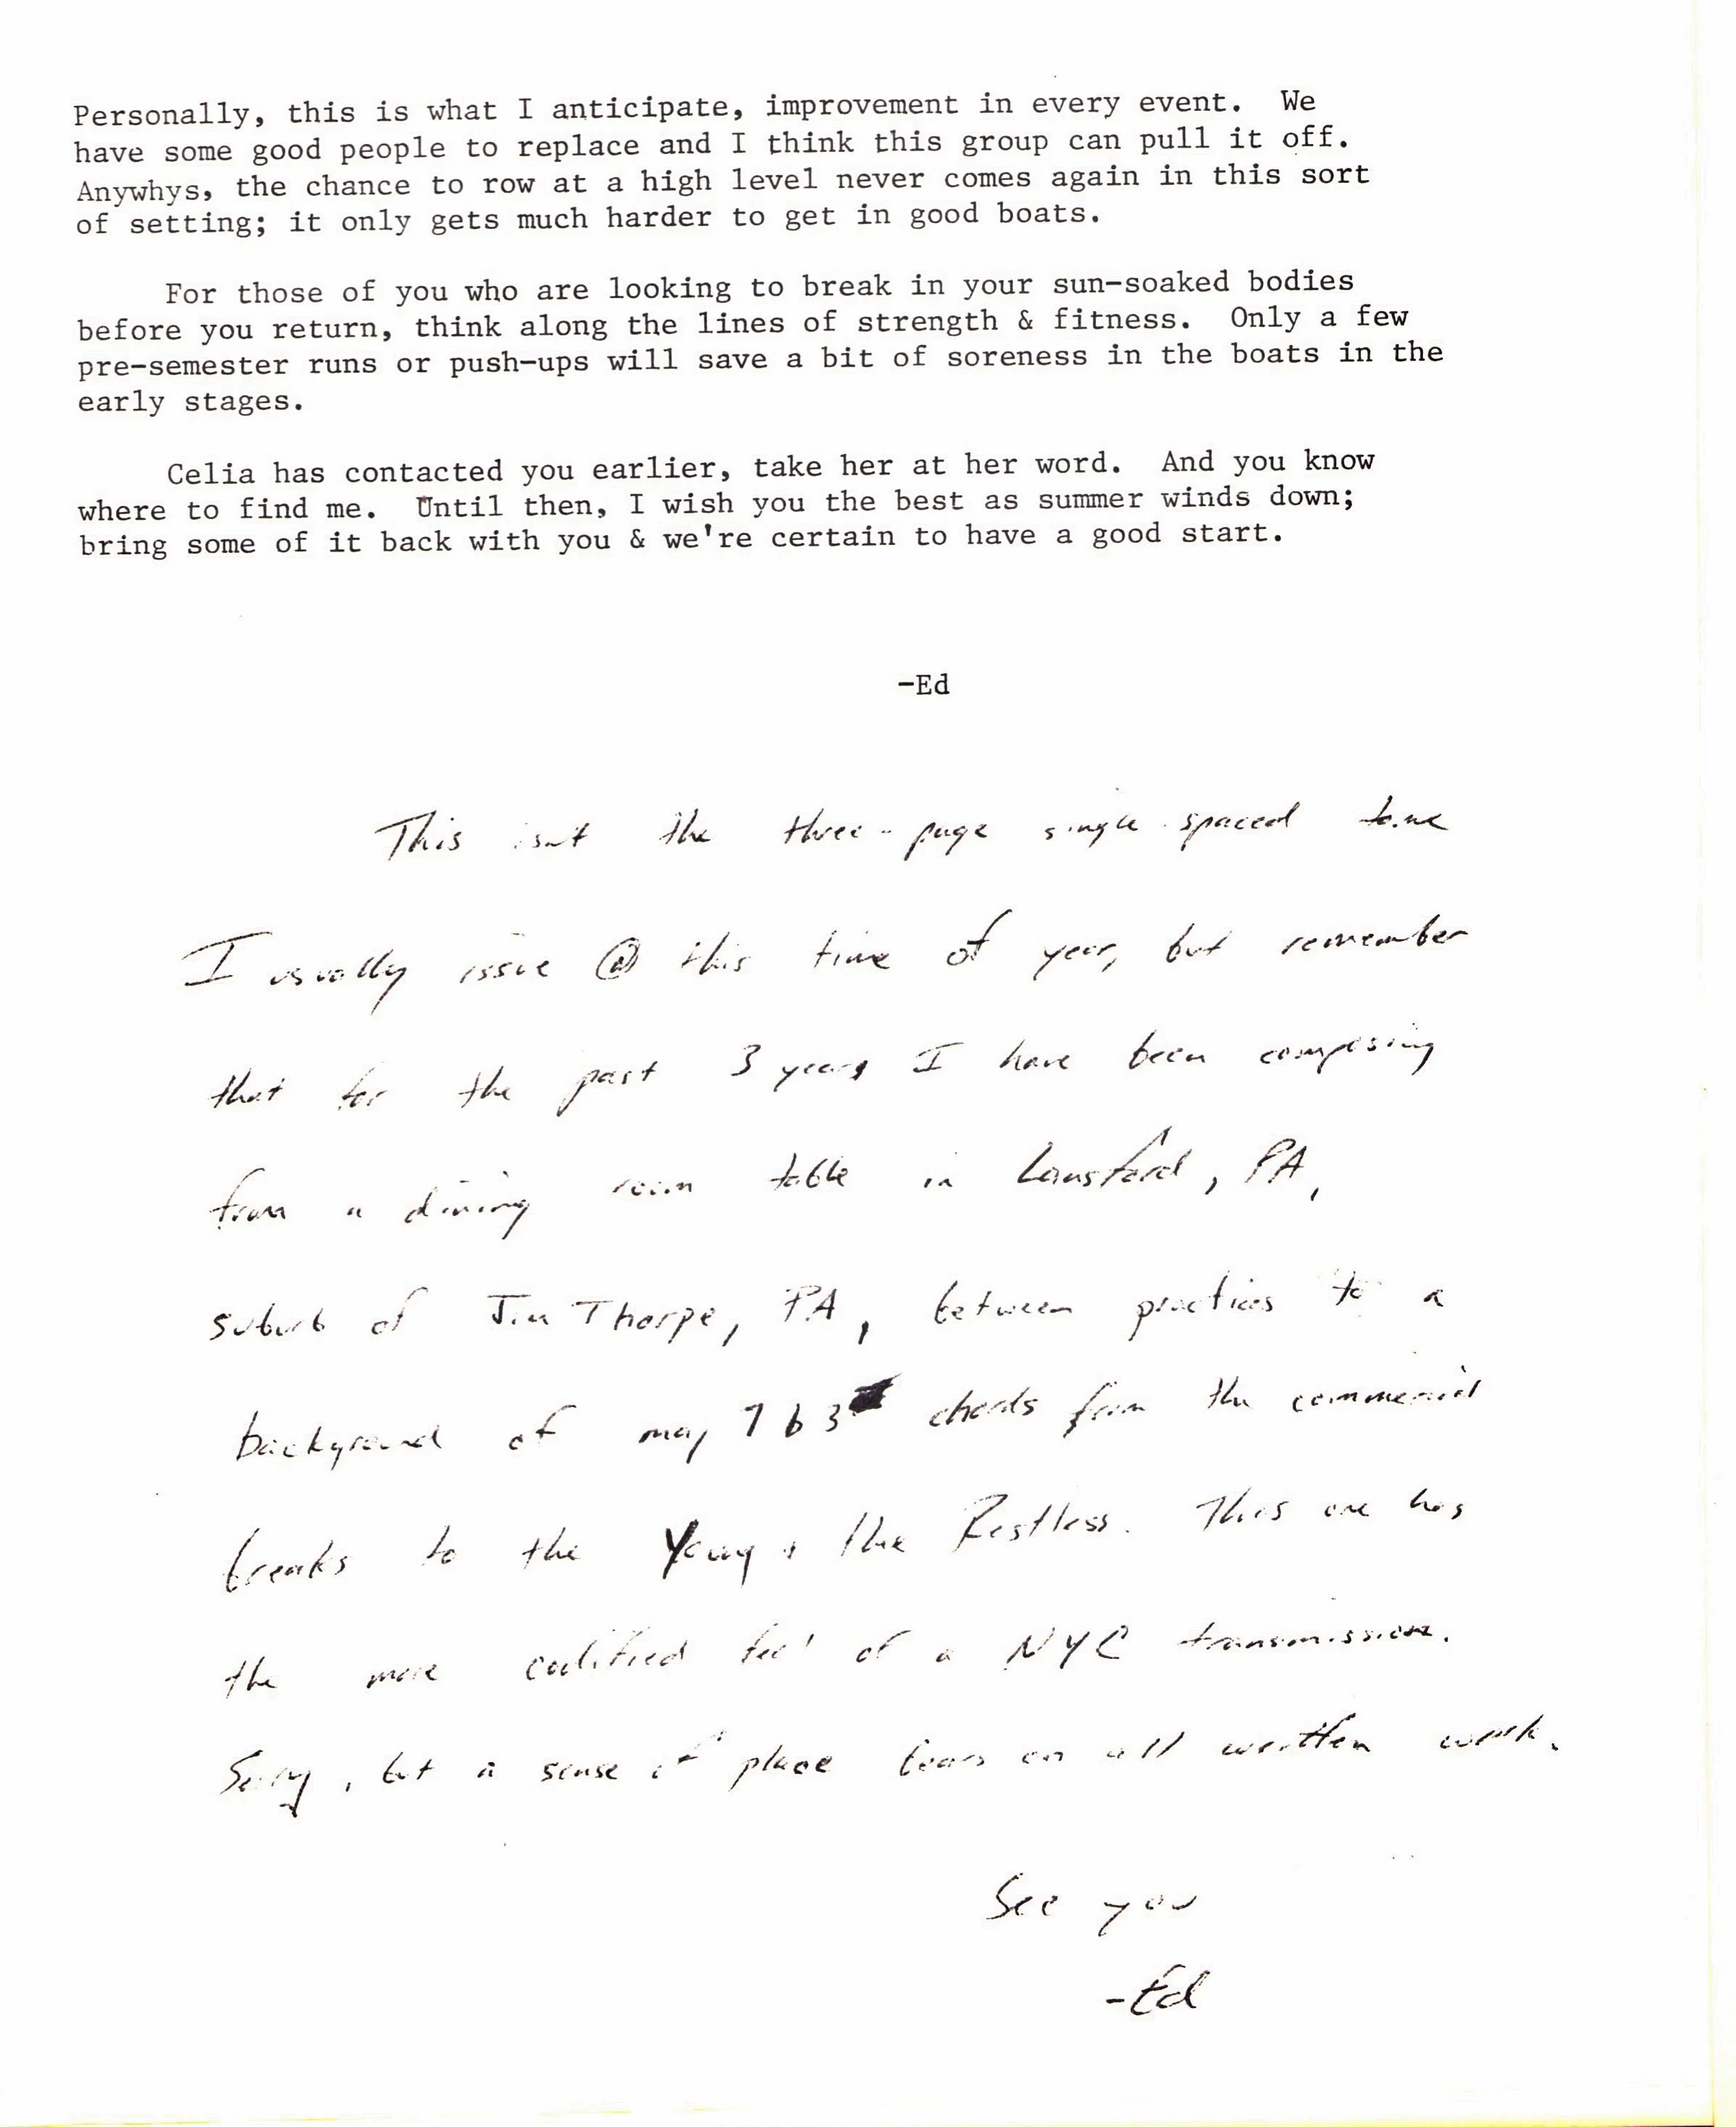 Personally, this is what I anticipate, improvement in every event. We
have some good people to replace and I think this group can pull it off.
Anywhys, the chance to row at a high level never comes again in this sort
of setting; it only gets much harder to get in good boats.
For those of you who are looking to break in your sun-soaked bodies
before you return, think along the lines of strength & fitness. Only a few
pre-semester runs or push-ups will save a bit of soreness in the boats in the
early stages.
Celia has contacted you earlier, take her at her word. And you know
where to find me. Until then, I wish you the best as summer winds down;
bring some of it back with you & we're certain to have a good start.
-Ed
This isnt the three-page single-spaced tome
I usually issue @ this time of year, but remember
that for the past 3 years I have been composing
from a dining room table in Lansford, PA,
suburb of Jim Thorpe, PA, between practices to a
background of maj 7 b 3 chords from the commercial
breaks to the Young & the Restless. This one has
the more codified feel of a NYC transmission.
Sorry, but a sense of place bears on all written work.
See you
-Ed